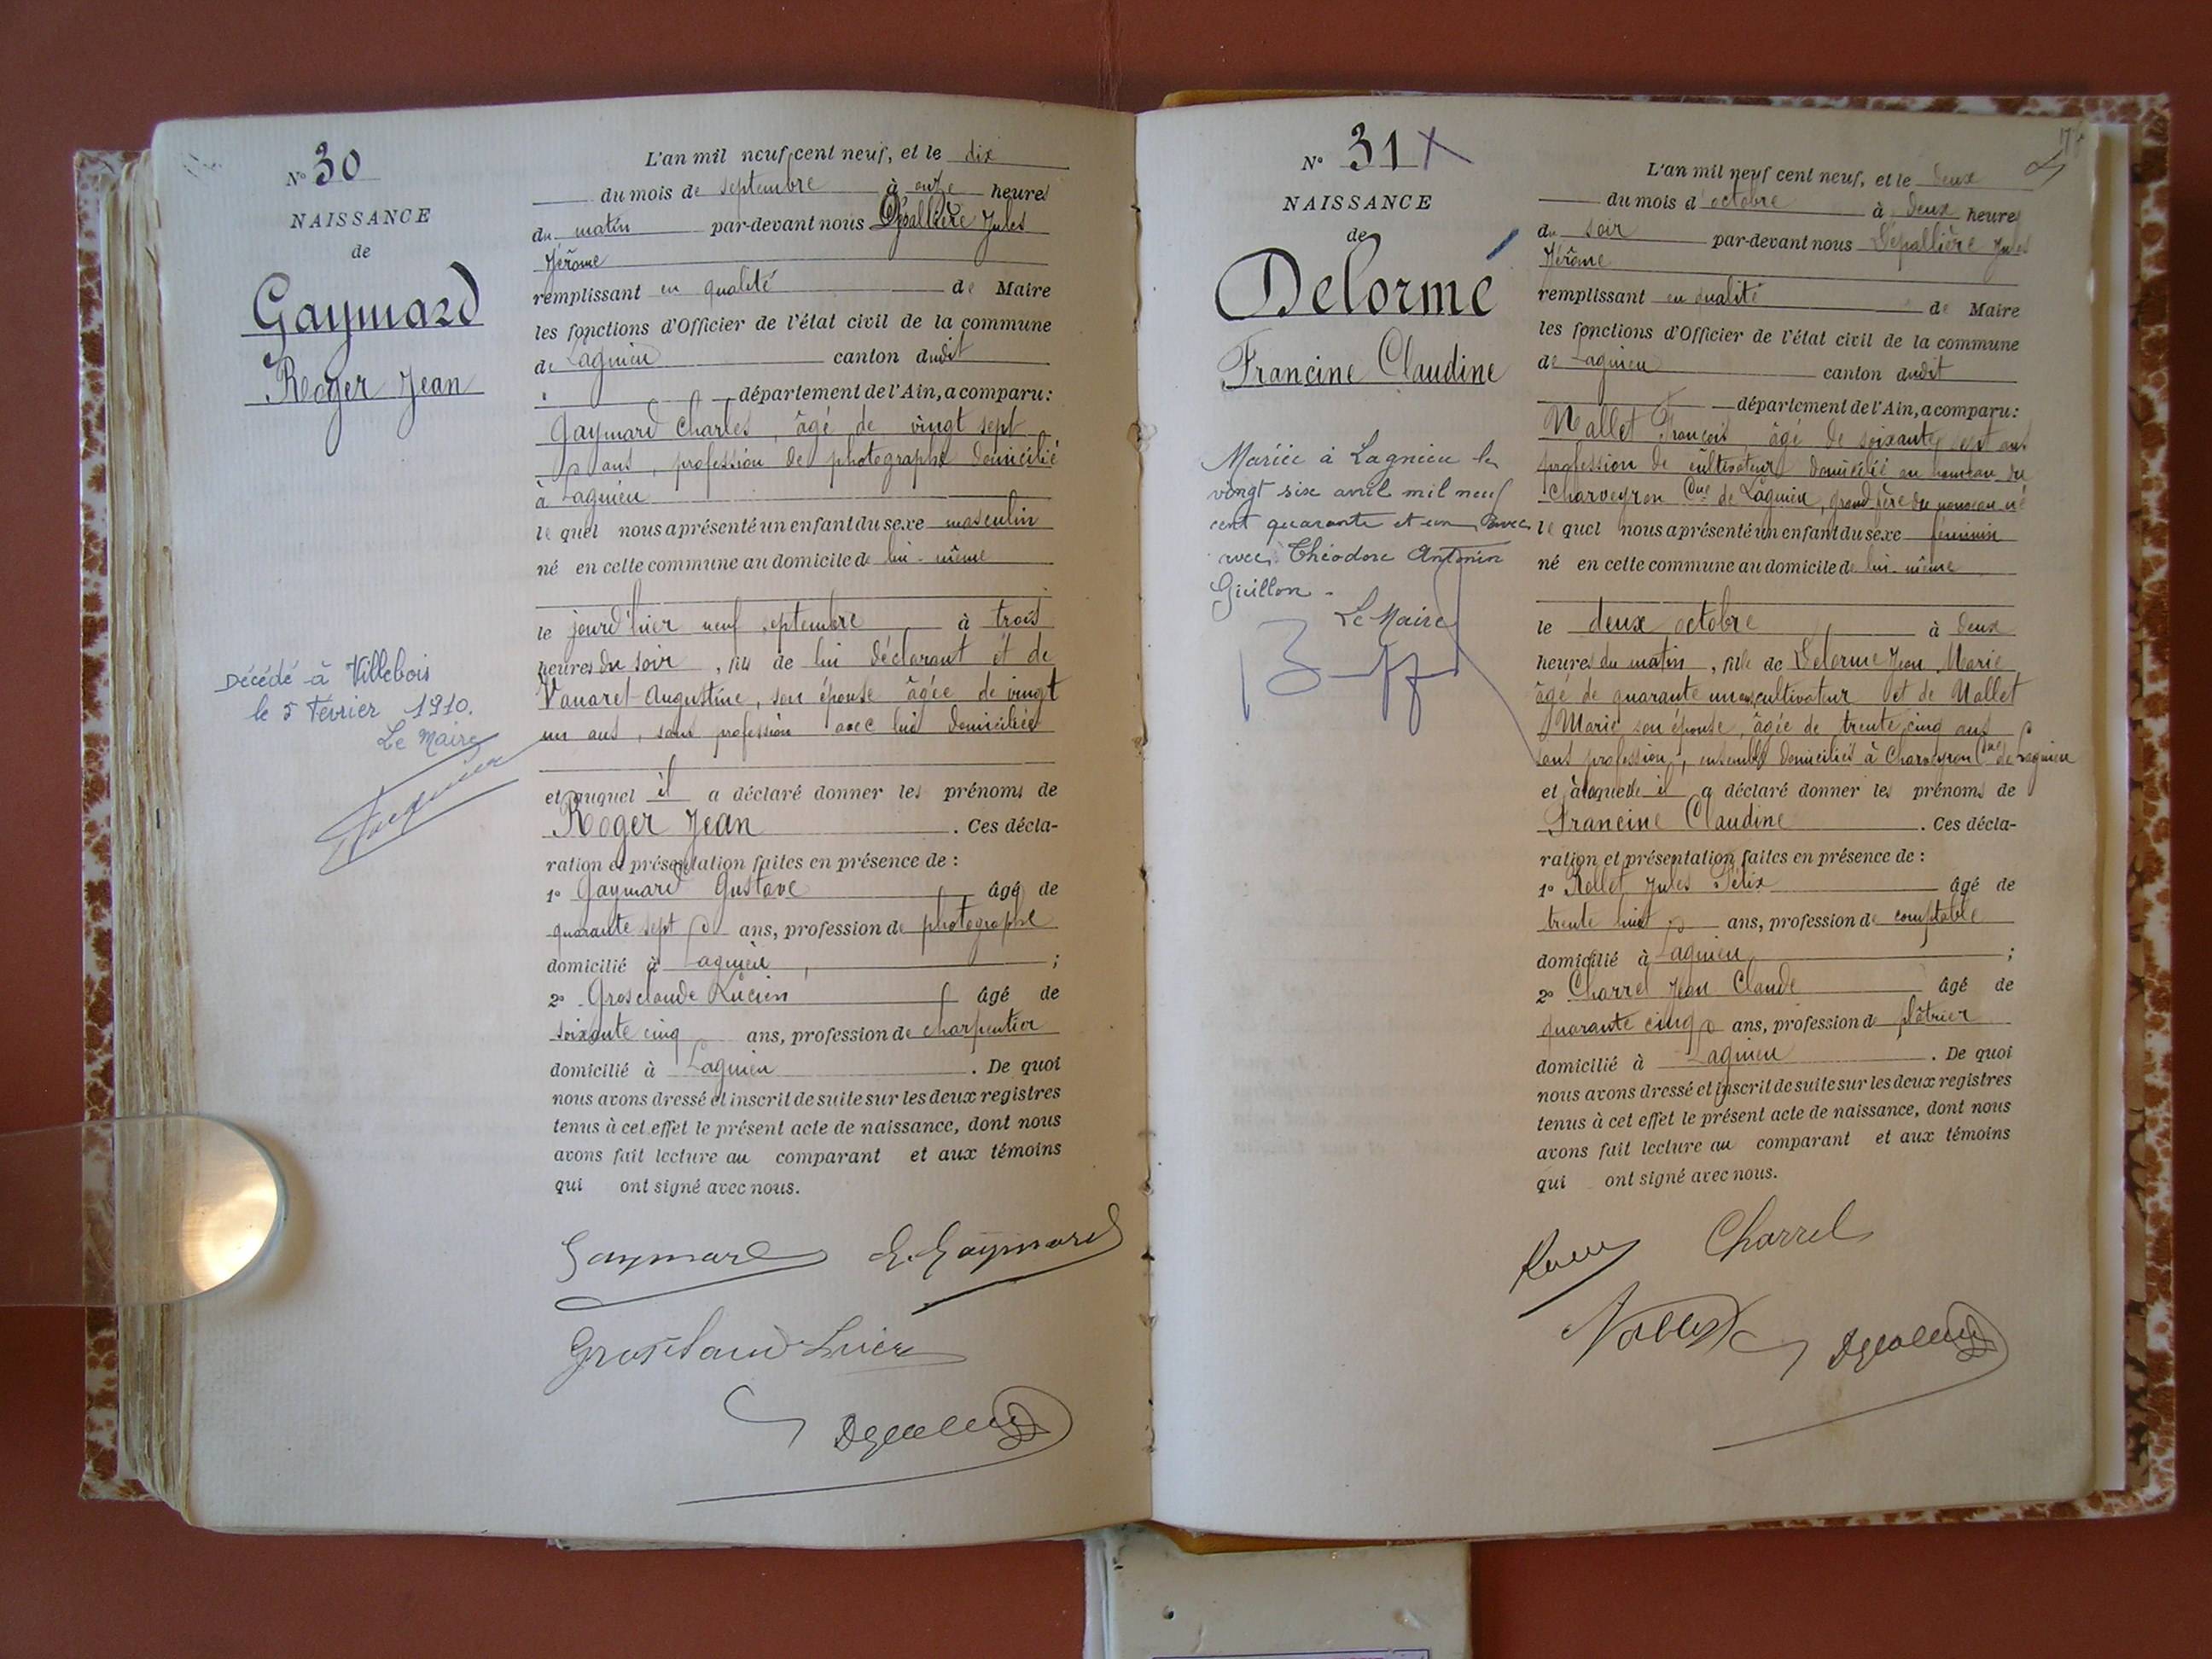 Nº 30
NAISSANCE
de
Gaymard
Roger Jean
Décédé à Villebois
le 5 Février 1910.
Le Maire
L'an mil neuf cent neuf, et le dix
du mois de septembre à onze heures
du matin par-devant nous Dépallière Jules
Jérôme
remplissant en qualité de Maire
les fonctions d'Officier de l'état civil de la commune
de Lagnieu canton dudit
département de l'Ain, a comparu :
Gaymard Charles, âgé de vingt sept
ans, profession de photographe domicilié
à Lagnieu
le quel nous a présenté un enfant du sexe masculin
né en cette commune au domicile de lui-même
le jourd'hier neuf septembre à trois
heures du soir, fils de lui déclarant et de
Vanaret Augustine, son épouse âgée de vingt
un ans, sans profession avec lui domiciliée
et auquel il a déclaré donner les prénoms de
Roger Jean. Ces décla-
ration et présentation faites en présence de :
1º Gaymard Gustave âgé de
quarante sept ans, profession de photographe
domicilié à Lagnieu ;
2º Grosclaude Lucien âgé de
soixante cinq ans, profession de charpentier
domicilié à Lagnieu. De quoi
nous avons dressé et inscrit de suite sur les deux registres
tenus à cet effet le présent acte de naissance, dont nous
avons fait lecture au comparant et aux témoins
qui ont signé avec nous.
Gaymard G. Gaymard
Grosclaude Lucien
Nº 31 X
NAISSANCE
de
Delorme
Francine Claudine
Mariée à Lagnieu le
vingt six avril mil neuf
cent quarante et un avec
avec Théodore Antonin
Guillon.
Le Maire
L'an mil neuf cent neuf, et le deux
du mois d'octobre à deux heures
du soir par-devant nous Dépallière Jules
Jérôme
remplissant en qualité de Maire
les fonctions d'Officier de l'état civil de la commune
de Lagnieu canton dudit
département de l'Ain, a comparu :
Nallet François âgé de soixante sept ans
profession de cultivateur domicilié au hameau de
Charveyron Cne de Lagnieu, grand père du nouveau né
le quel nous a présenté un enfant du sexe féminin
né en cette commune au domicile de lui-même
le deux octobre à deux
heures du matin, fille de Delorme Jean Marie
âgé de quarante un ans, cultivateur et de Nallet
Marie son épouse, âgée de trente cinq ans
sans profession, ensemble domiciliés à Charveyron Cne de Lagnieu
et à laquelle il a déclaré donner les prénoms de
Francine Claudine. Ces décla-
ration et présentation faites en présence de :
1º Jules Félix âgé de
trente huit ans, profession de comptable
domicilié à Lagnieu ;
2º Charrel Jean Claude âgé de
quarante cinq ans, profession de plâtrier
domicilié à Lagnieu. De quoi
nous avons dressé et inscrit de suite sur les deux registres
tenus à cet effet le présent acte de naissance, dont nous
avons fait lecture au comparant et aux témoins
qui ont signé avec nous.
Charrel
Nallet